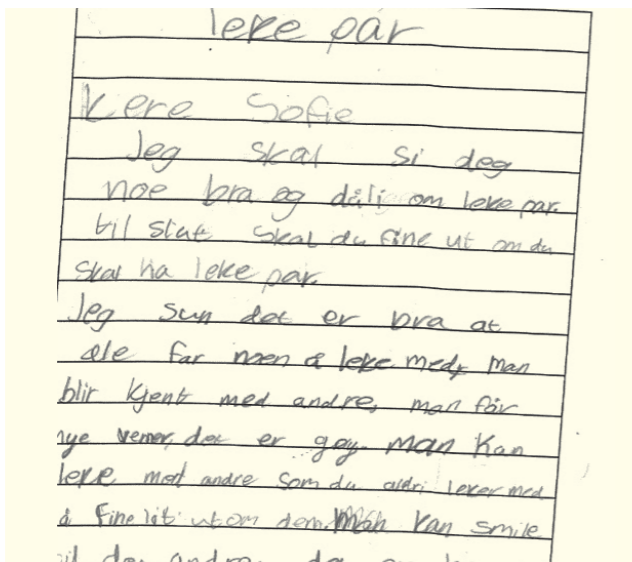 leke par
Kere Sofie
Jeg skal si deg
noe bra og dåli om leke par.
til slut skal du fine ut om du
skal ha leke par.
Jeg sun det er bra at
ale får noen å leke med, man
blir kjent med andre, man får
nye vener, det er gøy. Man kan
leke med andre som du aldri leker med
å fine lit ut om dem. Man kan smile
til de andre